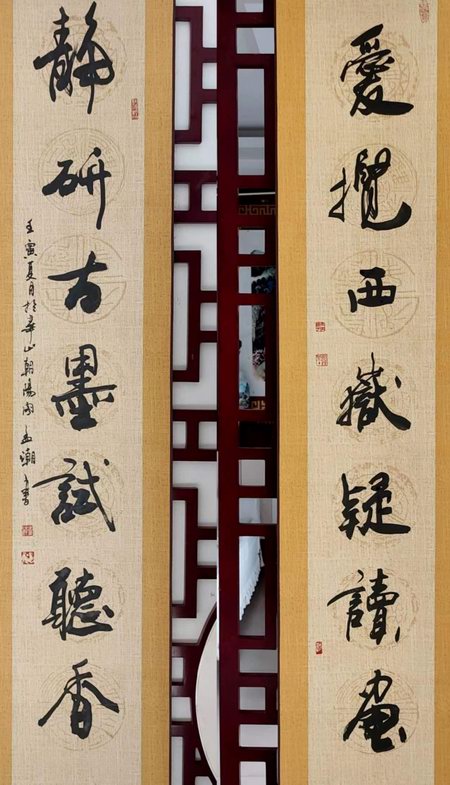 愛攬西嶽疑讀畫
靜研古墨試聽香
壬寅夏月於華山朝陽
書